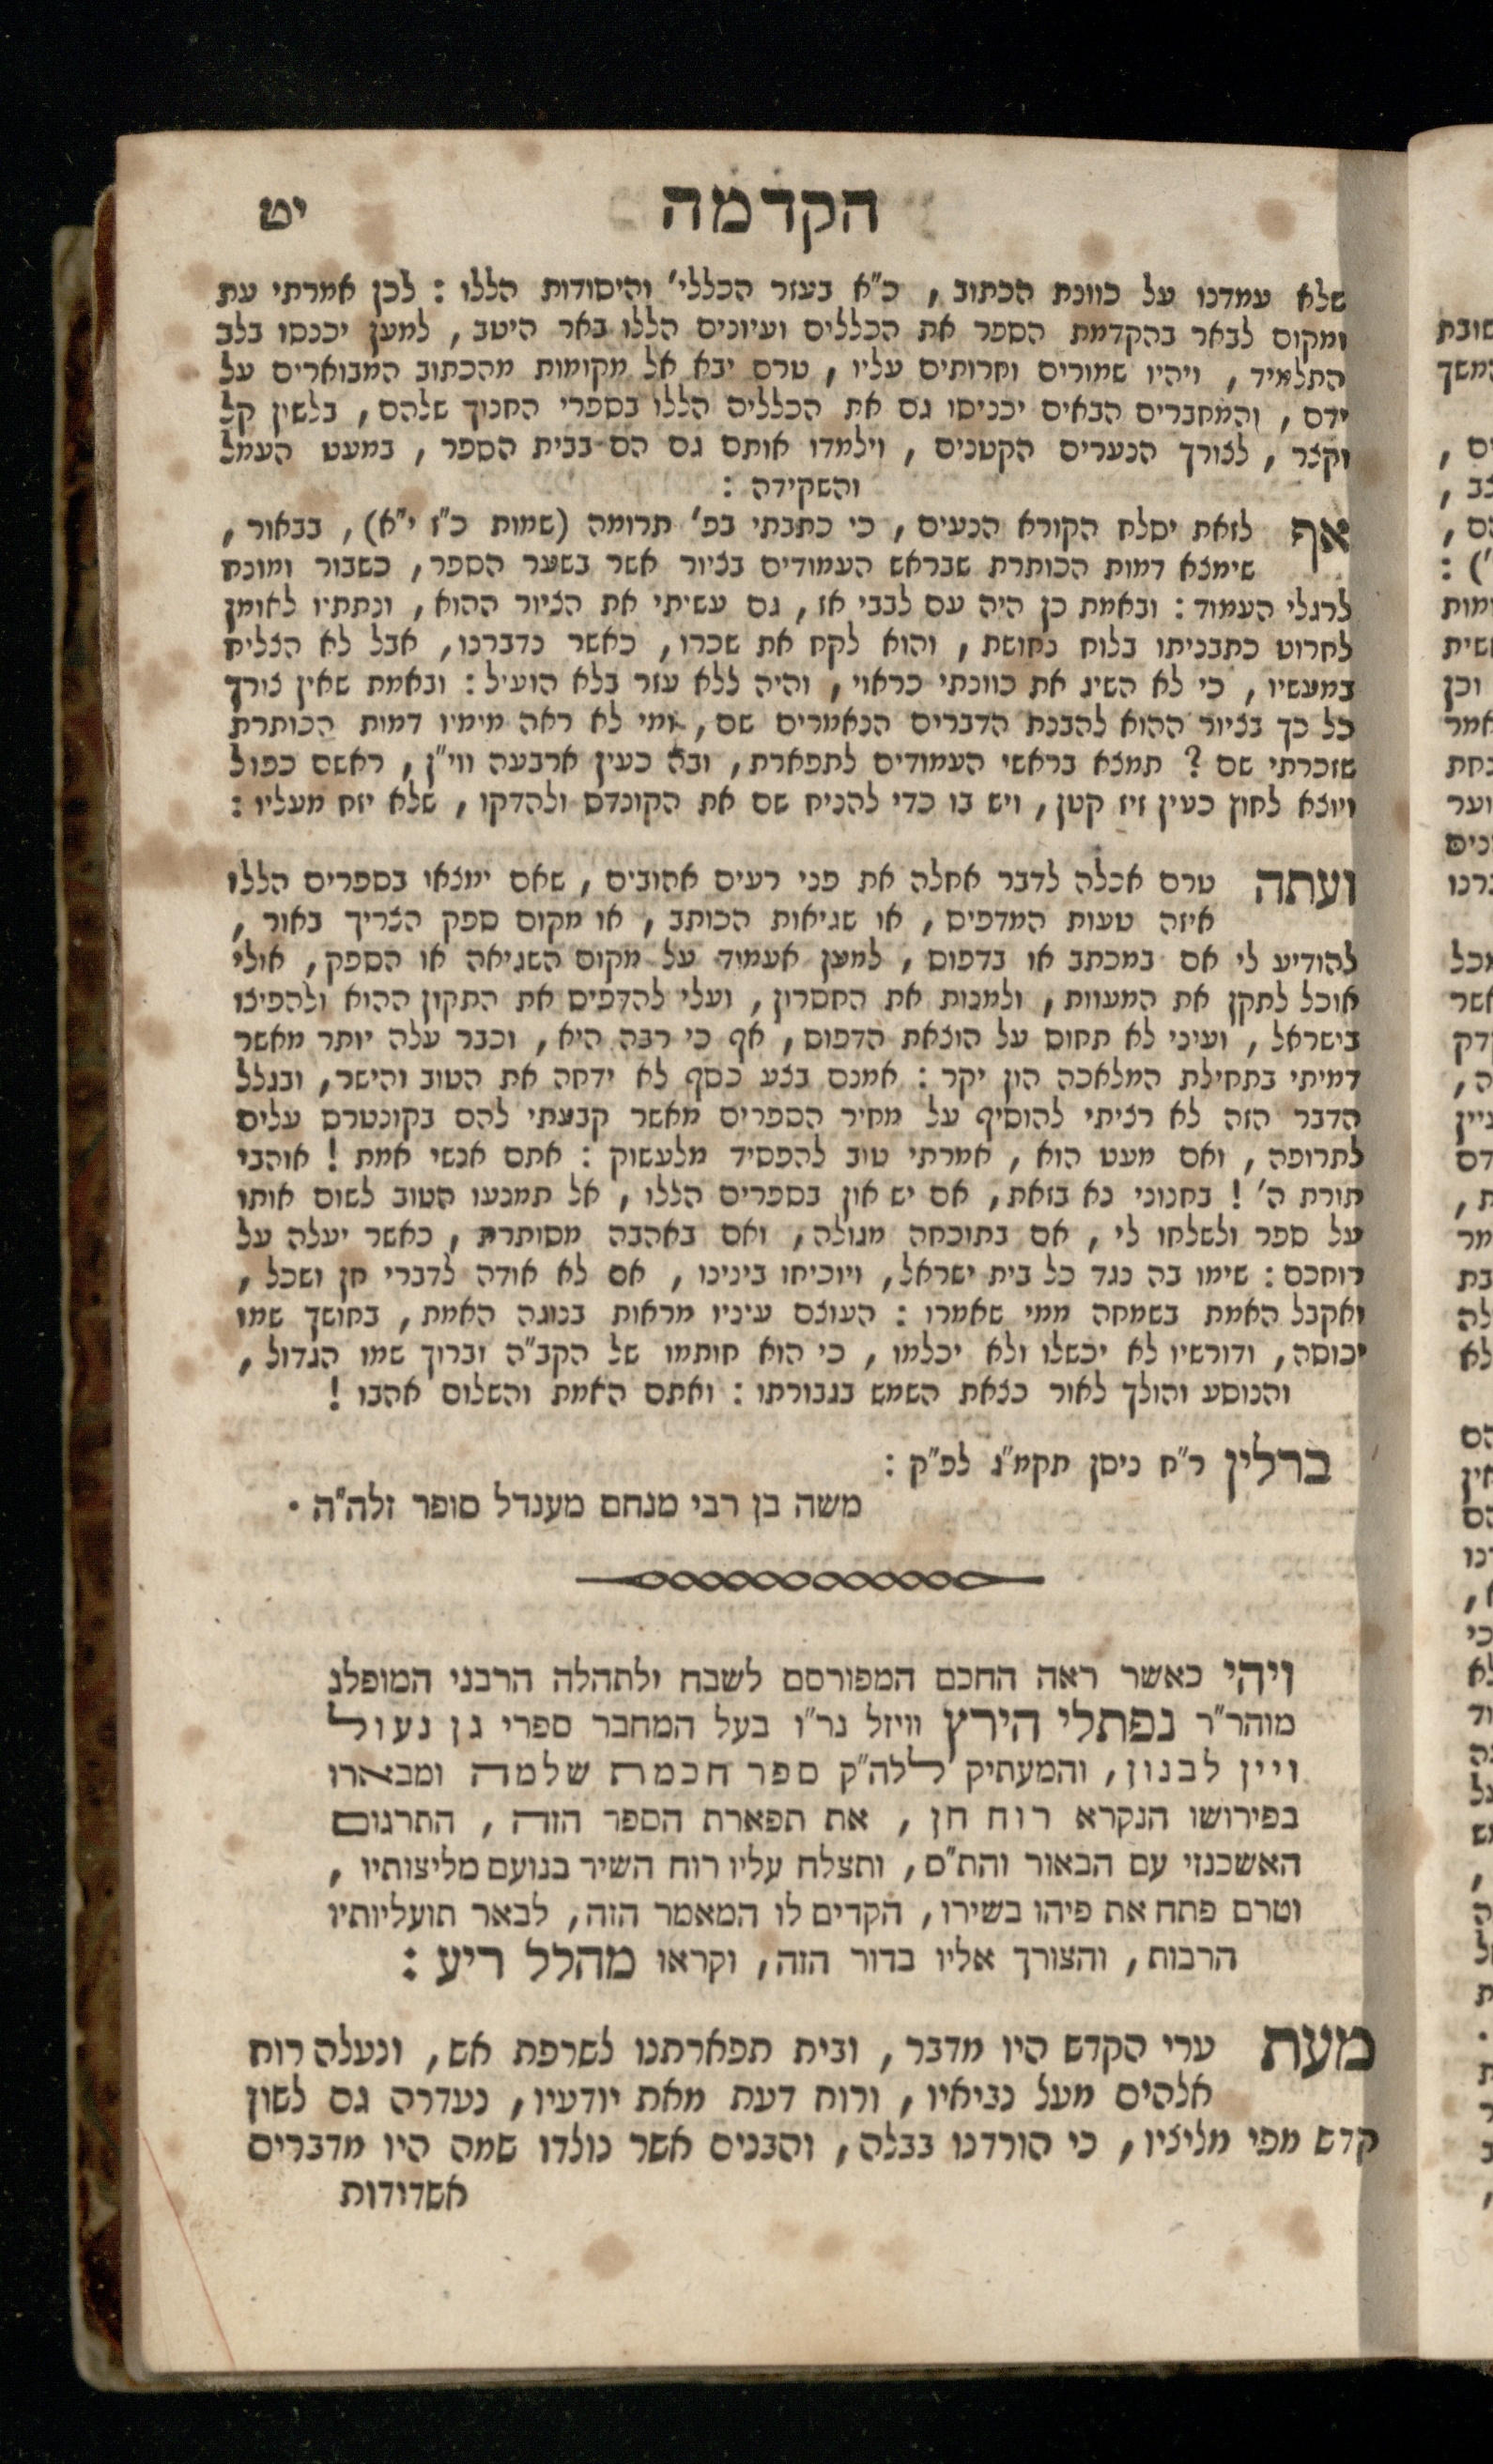 הקדמה יט
שלא עמדנו על כוונת הכתוב, כ"א בעזר הכללי' והיסודות הללו: לכן אמרתי עת
ומקום לבאר בהקדמת הספר את הכללים ועיונים הללו באר היטב, למען יכנסו בלב
התלמיד, ויהיו שמורים וחרותים עליו, טרם יבא אל מקומות מהכתוב המבוארים על
ידם, והמחברים הבאים יכניסו גם את הכללים הללו בספרי החנוך שלהם, בלשון קל
וקצר, לצורך הנערים הקטנים, וילמדו אותם גם הם בבית הספר, במעט העמל
והשקידה:
אף לזאת יסלח הקורא הנעים, כי כתבתי בפ' תרומה (שמות כ"ז י"א), בבאור,
שימצא דמות הכותרת שבראש העמודים בציור אשר בשער הספר, כשבור ומונח
לרגלי העמוד: ובאמת כן היה עם לבבי אז, גם עשיתי את הציור ההוא, ונתתיו לאומן
לחרוט כתבניתו בלוח נחושת, והוא לקח את שכרו, כאשר נדברנו, אבל לא הצליח
במעשיו, כי לא השיג את כוונתי כראוי, והיה ללא עזר בלא הועיל: ובאמת שאין צורך
כל כך בציור ההוא להבנת הדברים הנאמרים שם, ומי לא ראה מימיו דמות הכותרת
שזכרתי שם? תמצא בראשי העמודים לתפארת, ובא כעין ארבעה ווי"ן, ראשם כפול
ויוצא לחוץ כעין זיז קטן, ויש בו כדי להניח שם את הקונדס ולהדקו, שלא יזח מעליו:
ועתה טרם אכלה לדבר אחלה את פני רעים אהובים, שאם ימצאו בספרים הללו
איזה טעות המדפיס, או שגיאות הכותב, או מקום ספק הצריך באור,
להודיע לי אם במכתב או בדפוס, למען אעמוד על מקום השגיאה או הספק, אולי
אוכל לתקן את המעוות, ולמנות את החסרון, ועלי להדפים את התקון ההוא ולהפיצו
בישראל, ועיני לא תחוס על הוצאת הדפוס, אף כי רבה היא, וכבר עלה יותר מאשר
דמיתי בתחילת המלאכה הון יקר: אמנם בצע כסף לא ידחה את הטוב והישר, ובגלל
הדבר הזה לא רציתי להוסיף על מחיר הספרים מאשר קבעתי להם בקונטרס עלים
לתרופה, ואם מעט הוא, אמרתי טוב להפסיד מלעשוק: אתם אנשי אמת! אוהבי
תורת ה'! בחנוני נא בזאת, אם יש און בספרים הללו, אל תמנעו הטוב לשום אותו
על ספר ולשלחו לי, אם בתוכחה מגולה, ואם באהבה מסותרת, כאשר יעלה על
רוחכם: שימו בה נגד כל בית ישראל, ויוכיחו בינינו, אם לא אודה לדברי חן ושכל,
ואקבל האמת בשמחה ממי שאמרו: העוצם עיניו מראות בנוגה האמת, בחושך שמו
יכוסה, ודורשיו לא יכשלו ולא יכלמו, כי הוא חותמו של הקב"ה וברוך שמו הגדול,
והנוסע והולך לאור כצאת השמש בגבורתו: ואתם האמת והשלום אהבו!
ברלין ר"ח ניסן תקמ"ג לפ"ק:
משה בן רבי מנחם מענדל סופר זלה"ה.
ויהי כאשר ראה החכם המפורסם לשבח ולתהלה הרבני המופלג
מוהר"ר נפתלי הירץ וויזל נר"ו בעל המחבר ספרי גן נעול
ויין לבנון, והמעתיק ללה"ק ספר חכמת שלמה ומבארו
בפירושו הנקרא רוח חן, את תפארת הספר הזה, התרגום
האשכנזי עם הבאור והת"ס, ותצלח עליו רוח השיר בנועם מליצותיו,
וטרם פתח את פיהו בשירו, הקדים לו המאמר הזה, לבאר תועליותיו
הרבות, והצורך אליו בדור הזה, וקראו מהלל ריע:
מעת ערי הקדש היו מדבר, ובית תפארתנו לשרפת אש, ונעלה רוח
אלהים מעל נביאיו, ורוח דעת מאת יודעיו, נעדרה גם לשון
קדש מפי מליציו, כי הורדנו בבלה, והבנים אשר נולדו שמה היו מדברים
אשדודות